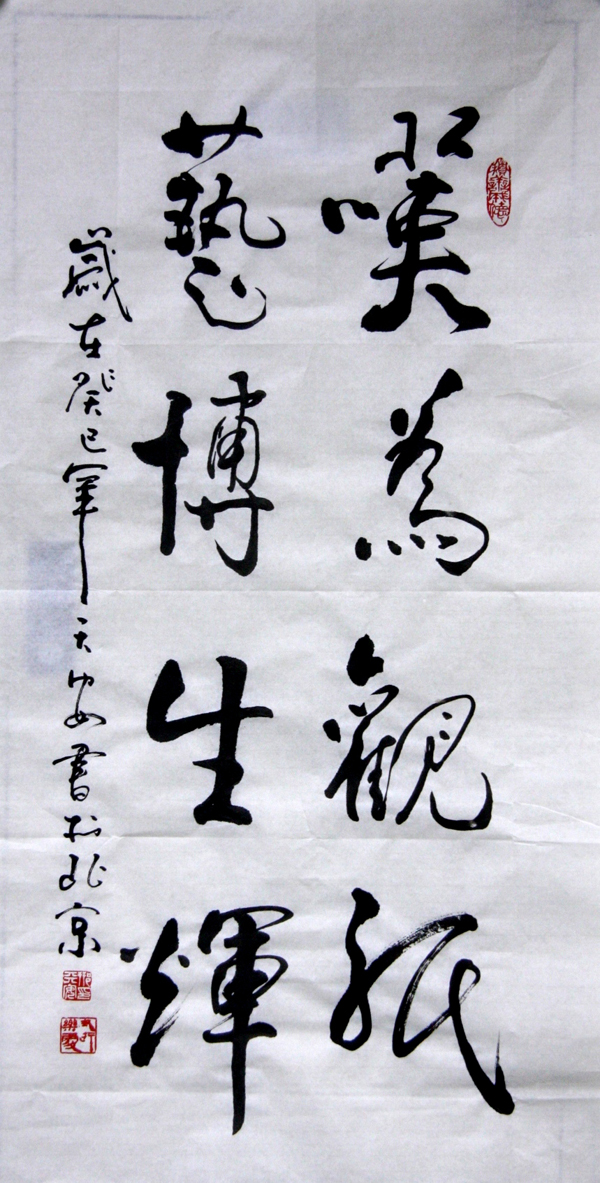 嘆為觀紙
藝博生輝
歲在癸巳軍天書於北京